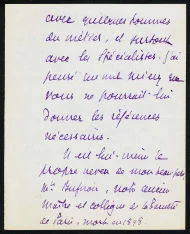 avec quelques hommes
du métier, et surtout
avec les spécialistes. J'ai
pensé que nul mieux que
vous ne pourrait lui
donner les références
nécessaires.
Il est lui-même le
propre neveu de mon beau-père
Mr notre ancien
maître et collègue de la Société
de Paris, mort en 1898